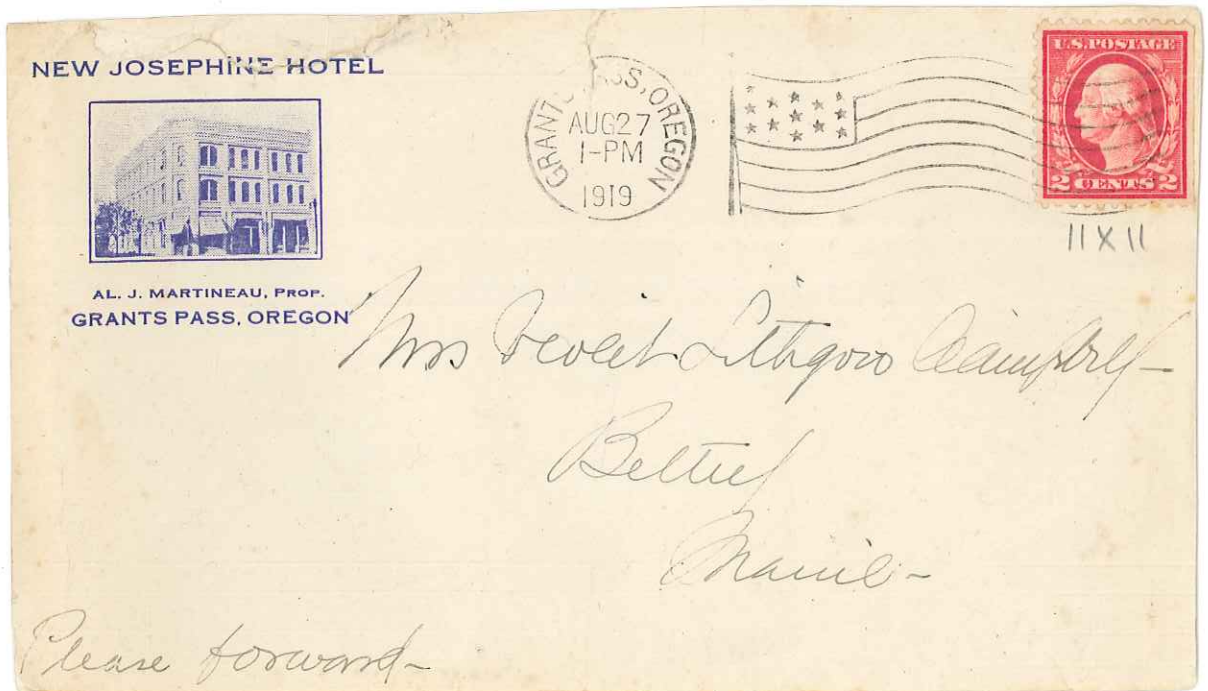 NEW JOSEPHINE HOTEL
AL. J. MARTINEAU, PROP.
GRANTS PASS, OREGON
GRANTS PASS, OREGON
AUG 27
1-PM
1919
U.S. POSTAGE
2 CENTS 2
11 X 11
Mrs Lithgow
Maine-
Please forward-